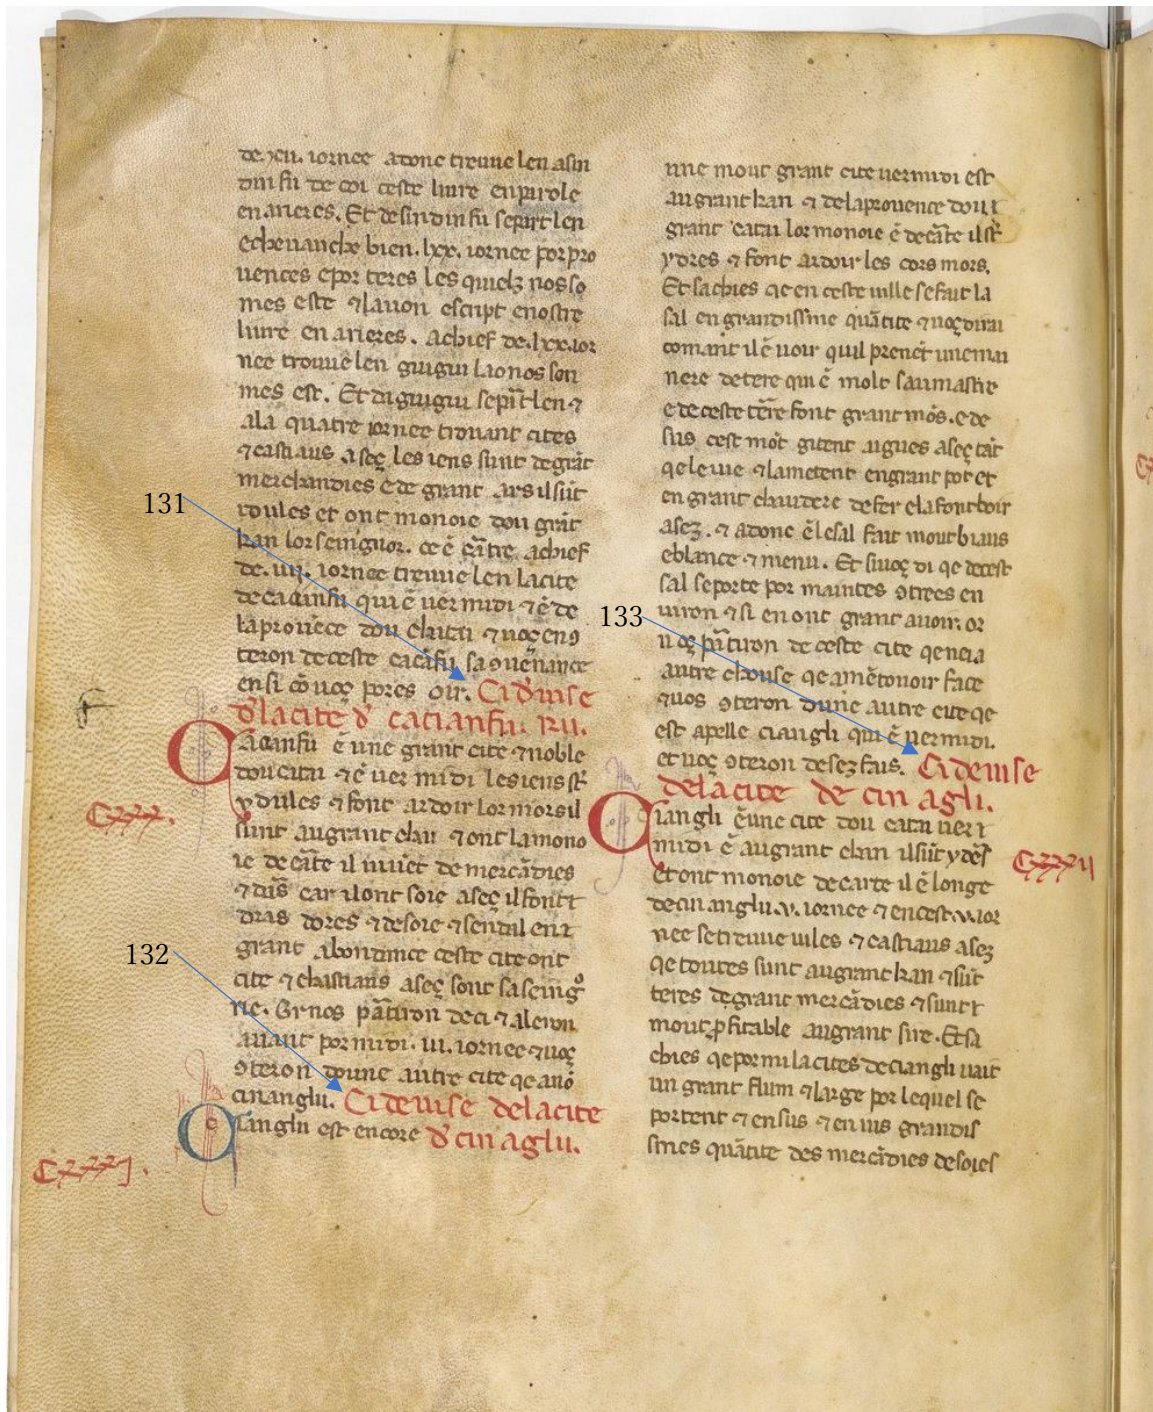 de .xcii. iornee adonc treuue len asin
din fu de coi ceste liure enparole
en arieres. Et de sindin fu separt len
echeuauche bien .lxx. iornee por pro
uences e por teres les quielz nos so
mes esté ⁊ lauon escript enostre
liure en arieres. Achief de .lxx. ior
nee trouue len guigui la o nos som
mes est. Et da guigiu se pa͂t len ⁊
ala quatre iornee trouant cites
⁊ castiaus aseç les iens sunt de grãt
merchandies e de grant ars il sũt
ydules et ont monoie dou grãt
kan lor seingnor. ce ẽ cãtre achief
de .iiii. iornee treuue len la cite
de cacianfu qui ẽ uer midi ⁊ ẽ de
la prouẽce dou chatai ⁊ uoç en 9
teron de ceste cacãfu sa 9uenance
ensi cõ uoç pores oir. Ci d'uise
d'la cite d' cacianfu. ru.
131
CAcanfu ẽ une grant cite ⁊ noble
dou catai ⁊ ẽ uer midi les iens st̃
ydules ⁊ font ardoir lor mors il
Cxxx.
sunt au grant chan ⁊ ont la mono
ie de cãte il uiuẽt de mercãdies
⁊ d'ars car il ont soie aseç il font
dras dores ⁊ de soie ⁊ sendal en
grant abondance ceste cite ont
cite ⁊ chastiaus aseç sont sa seing
rie. Or nos pãtiron de ci ⁊ aleron
auant por midi .iii. iornee ⁊ uoç
9teron doune autre cite qe a nõ
cinanglu. Ci deuise de la cite
132
Cianglu est encore d' cin aglu.
Cxxxj.
une mout grant cite uer midi est
au grant kan ⁊ de la prouence dou
grant catai lor monoie ẽ de cãte il st̃
ydres ⁊ font ardoir les cors mors.
Et sachies qe en ceste uille se fait la
sal en grandisime quãtite ⁊ uoç dirai
comant il ẽ uoir quil prenẽt une mai
nere de tere qui ẽ molt saumastre
e de ceste tẽre font grant mõs. e de
sus cest mõt gitent aigues aseç tãt
qe leiue ⁊ la metent en grant pot et
en grant chaudere de fer e la font boir
asez. ⁊ adonc ẽ le sal fait mout biaus
e blance ⁊ menu. Et si uoç di qe de cest
sal se porte por maintes 9trees en
uiron ⁊ si en ont grant auoir. or
uoç pãtiron de ceste cite qe n cia
autre chouse qe a mẽtouoir face
⁊ uos 9teron dune autre cite qe
est apelle ciangli qui ẽ uer midi.
et uoç 9teron de sez fais. Ci deuise
133
de la cite de cin agli.
Ciangli ẽ une cite dou catai uer
midi ẽ au grant chan il sũt ydr̃s
Cxxxii
et ont monoie de carte il ẽ longe
de cin anglu .v. iornee ⁊ en cest .v. ior
nee se treuue uiles ⁊ castiaus asez
qe toutes sunt au grant kan ⁊ sũt
teres de grant mercãdies ⁊ sunt
mout p̱fitable au grant sire. Et sa
chies qe por mi la cites de ciangli uait
un grant flum ⁊ large por lequel se
portent ⁊ en sus ⁊ en ius grandis
simes quãtite des mercãdies de soies